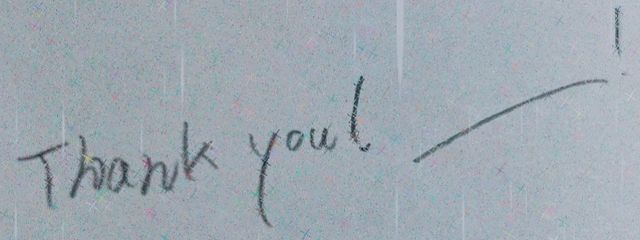 Thank you! — !